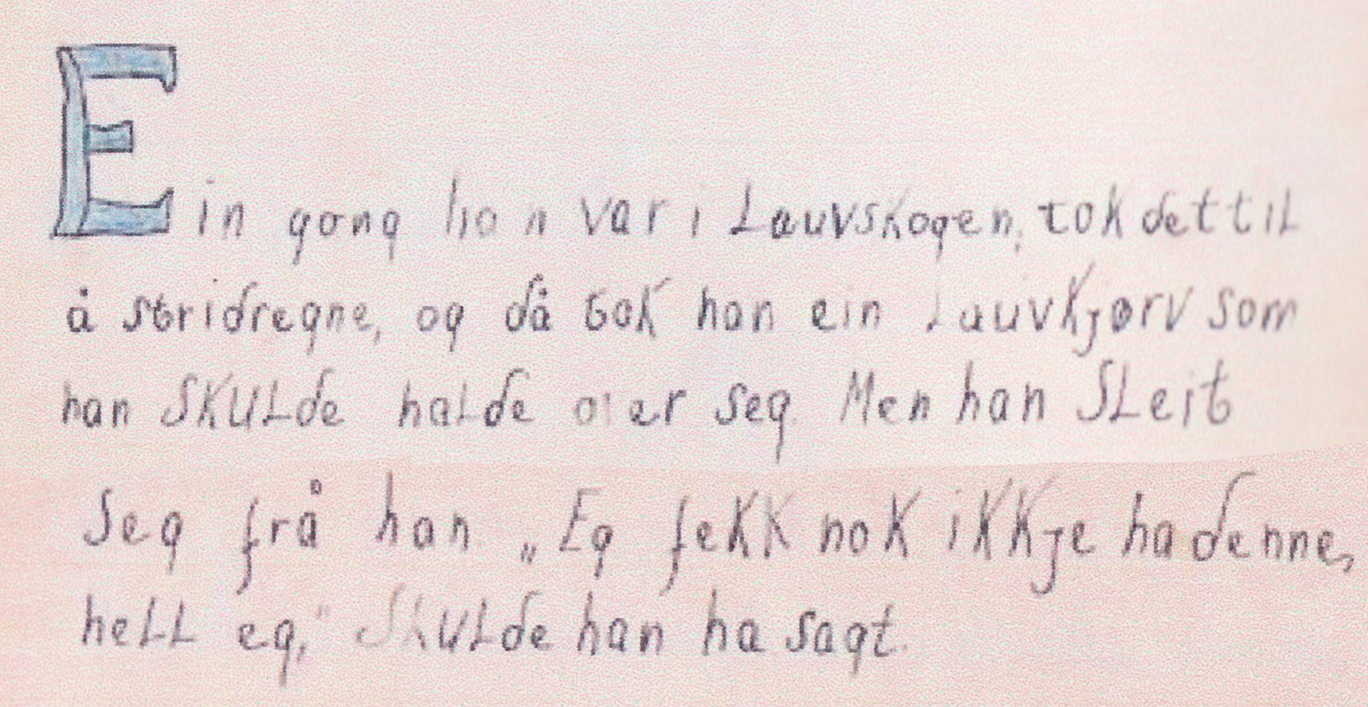 Ein gong han var i Lauvskogen, tok det til
å stridregne, og då tok han ein Lauvkjørv som
han skulde halde over seg. Men han sleit
seg frå han. „Eg fekk nok ikkje ha denne,
hell eg," skulde han ha sagt.